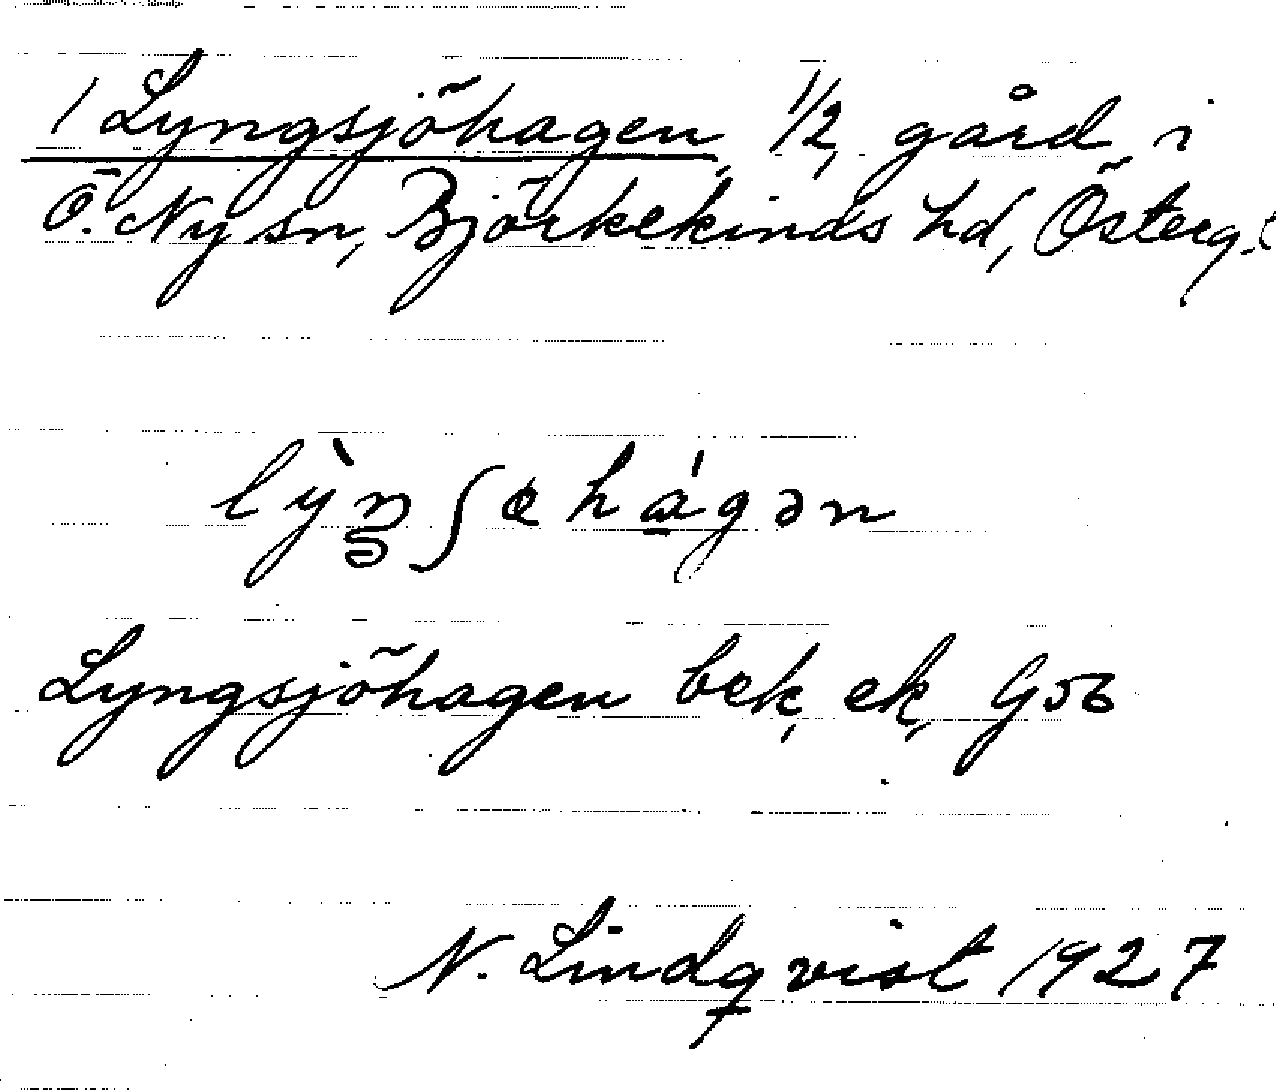 1 Lyngsjöhagen, 1/2 gård i
Ö. Ny sn, Björkekinds hd, Österg.
Lyngsjöhagen bek, ek, Gob
N. Lindqvist 1927